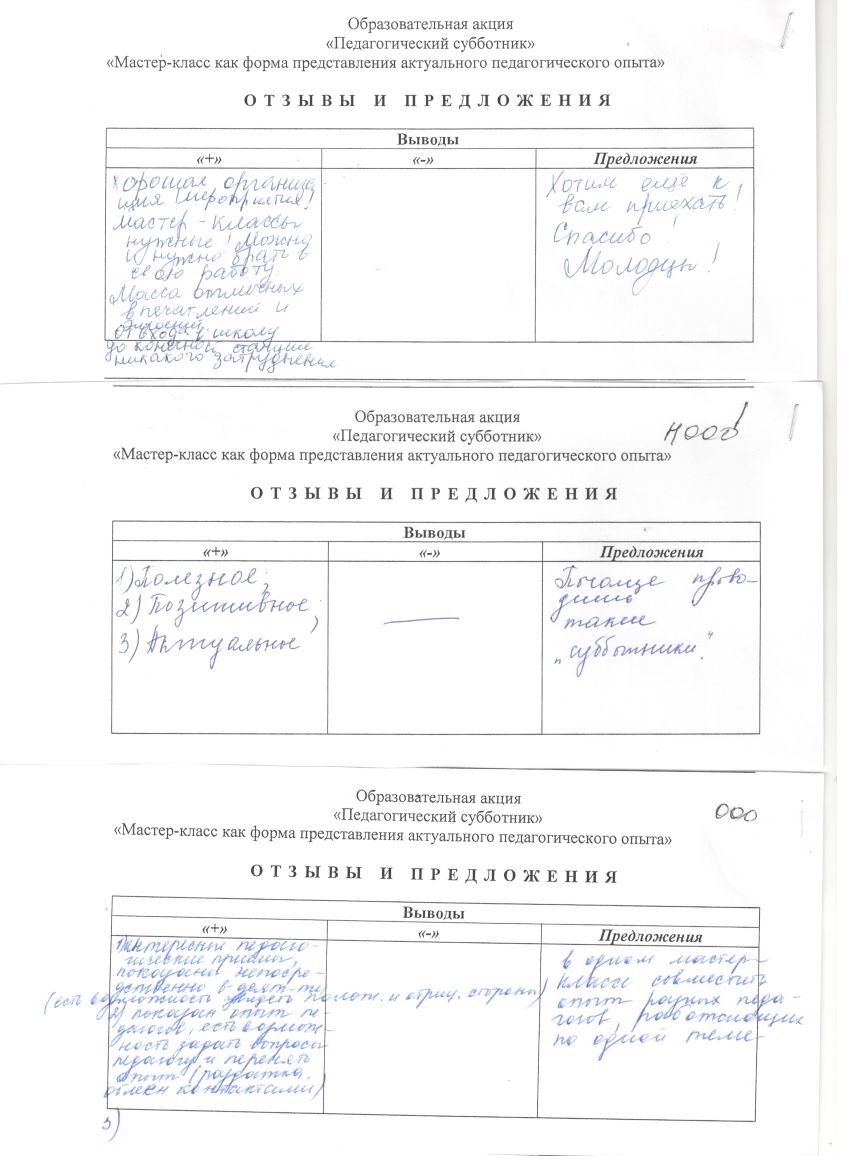 Образовательная акция
«Педагогический субботник»
«Мастер-класс как форма представления актуального педагогического опыта»
ОТЗЫВЫ И ПРЕДЛОЖЕНИЯ
Выводы
«+» «-» Предложения
Хорошая организа
ция мероприятия!
Мастер-классы
нужные! Можно
и нужно брать в
свою работу.
Масса отличных
впечатлений и
от входа в школу
до конечной станции
никакого затруднения
Хотим еще к
вам приехать!
Спасибо!
Молодцы!
Образовательная акция
«Педагогический субботник»
«Мастер-класс как форма представления актуального педагогического опыта»
НООО
ОТЗЫВЫ И ПРЕДЛОЖЕНИЯ
Выводы
«+» «-» Предложения
1) Полезное;
2) Позитивное;
3) Актуальное
Почаще прово-
дить
такие
„субботники".
Образовательная акция
«Педагогический субботник»
«Мастер-класс как форма представления актуального педагогического опыта»
ООО
ОТЗЫВЫ И ПРЕДЛОЖЕНИЯ
Выводы
«+» «-» Предложения
1) Интересные педаго-
гические приемы,
показаны непосре-
дственно в деят-ти
(есть возможность увидеть полож. и отриц. стороны)
2) показан опыт пе-
дагогов, есть возмож-
ность задать вопросы
педагогу и перенять
опыт (раздатка,
обмен контактами)
3)
в одном мастер-
классе совместить
опыт разных педа-
гогов, работающих
по одной теме